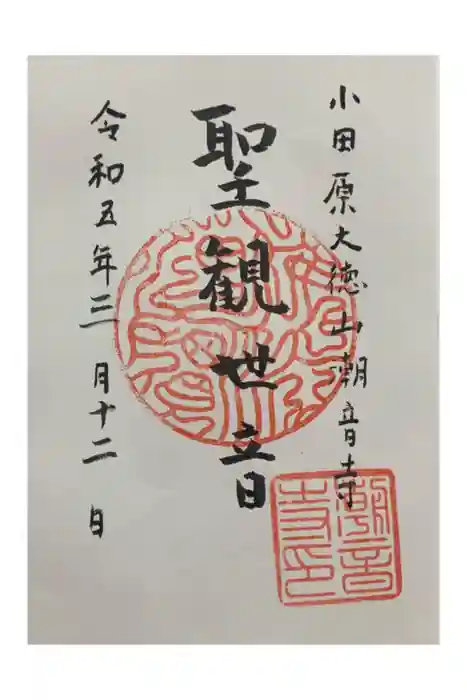 小田原大徳山潮音寺
聖観世音
令和五年三月十二日
潮音
寺印